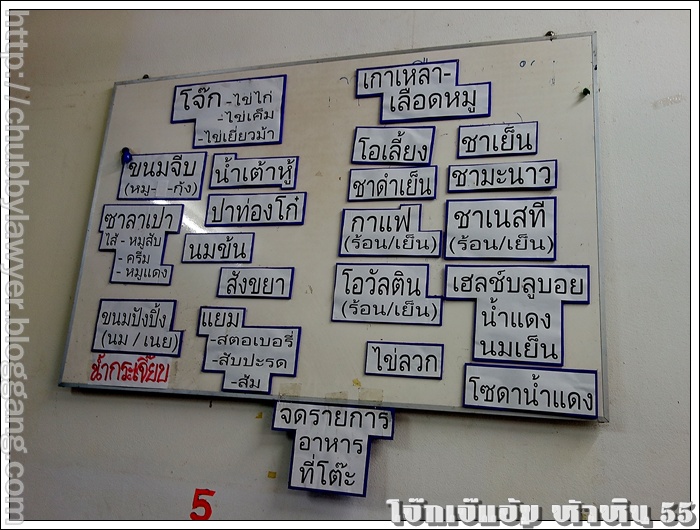 http://chubbylawyer.bloggang.com
โจ๊ก -ไข่ไก่
-ไข่เค็ม
-ไข่เยี่ยวม้า
เกาเหลา-
เลือดหมู
ขนมจีบ
(หมู- -กุ้ง)
น้ำเต้าหู้
โอเลี้ยง
ชาเย็น
ปาท่องโก๋
ชาดำเย็น
ชามะนาว
ซาลาเปา
ไส้ - หมูสับ
- ครีม
- หมูแดง
นมข้น
กาแฟ
(ร้อน/เย็น)
ชาเนสที
(ร้อน/เย็น)
สังขยา
โอวัลติน
(ร้อน/เย็น)
เฮลซ์บลูบอย
น้ำแดง
นมเย็น
ขนมปังปิ้ง
(นม / เนย)
แยม
-สตอเบอรี่
-สับปะรด
-ส้ม
ไข่ลวก
โซดาน้ำแดง
น้ำกระเจี๊ยบ
จดรายการ
อาหาร
ที่โต๊ะ
5
โจ๊กเจ๊แอ๊ว หัวหิน 55